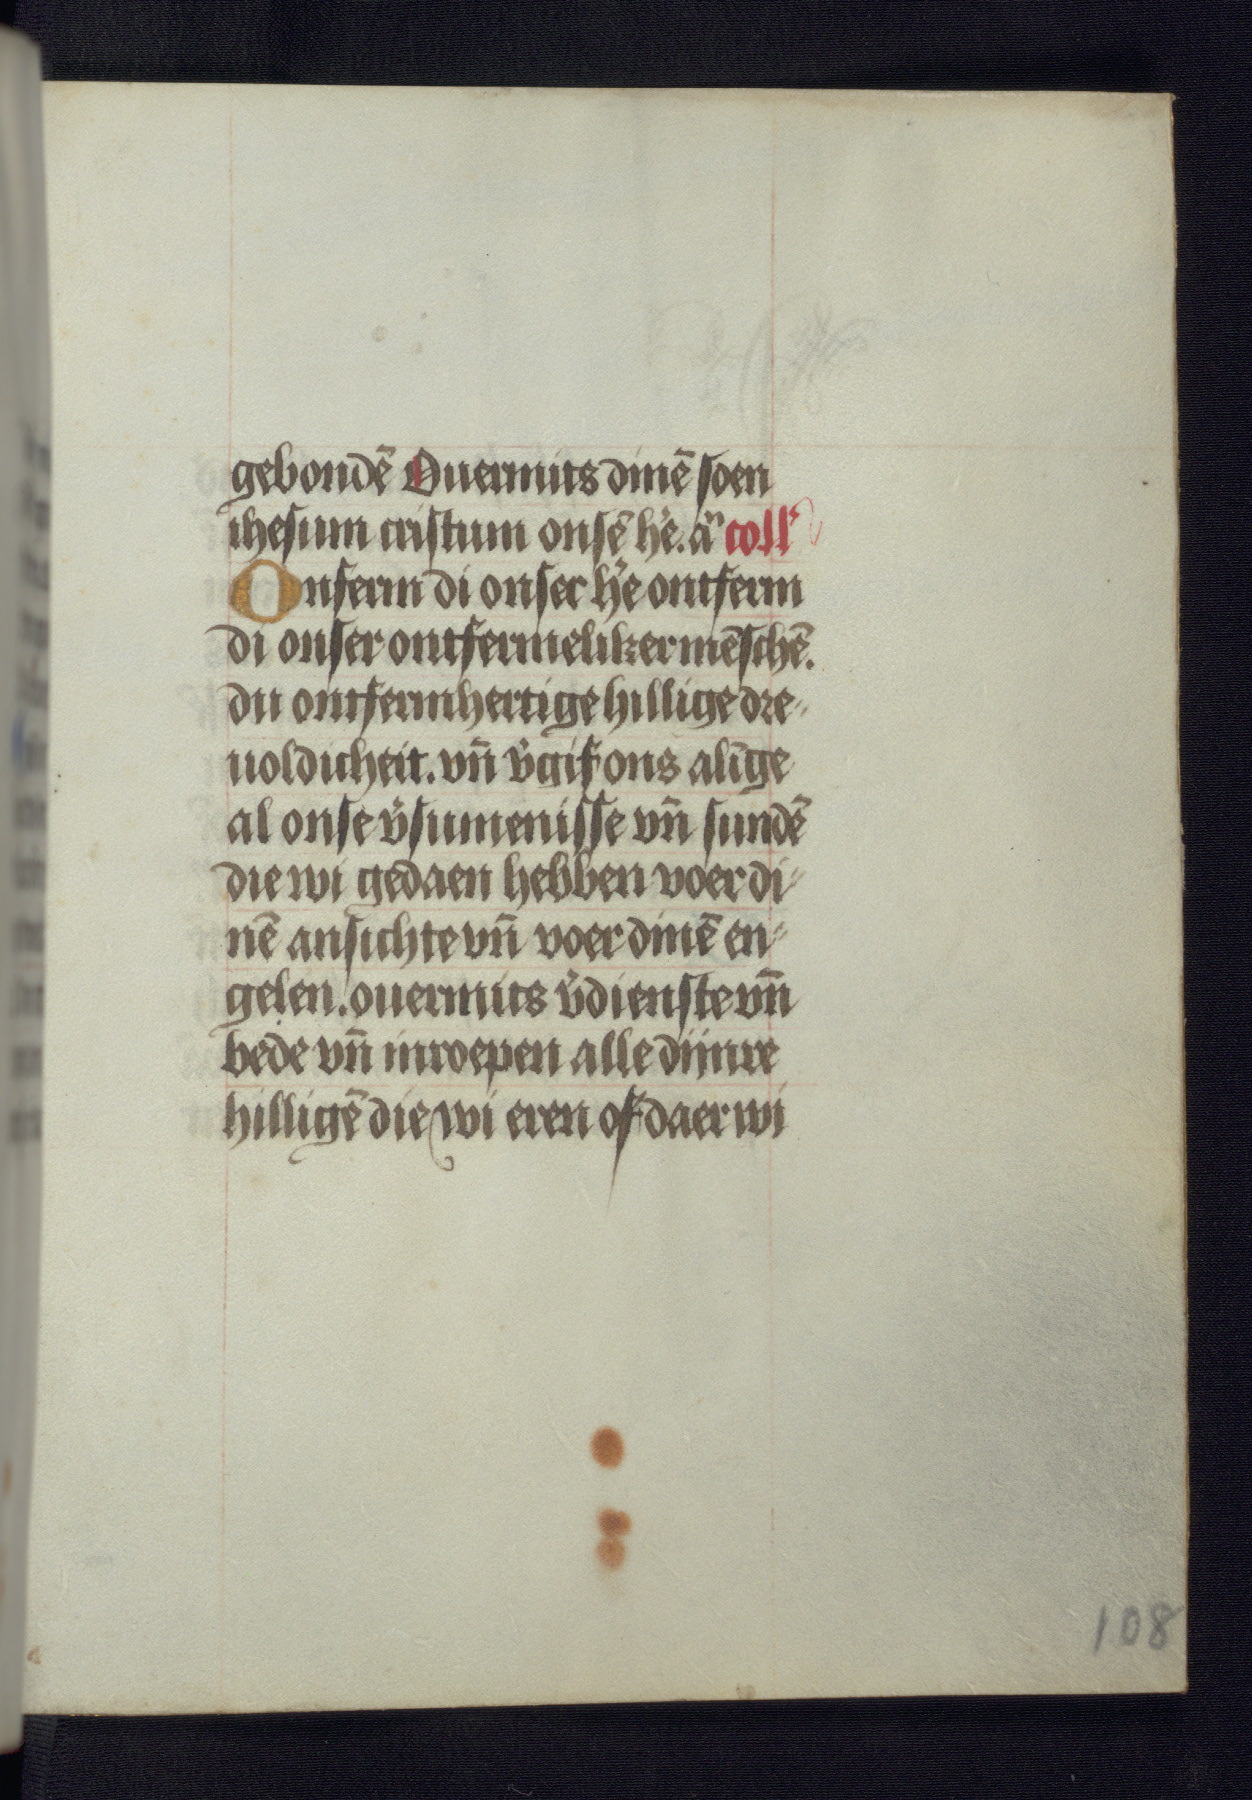 gebondē Ouermits dinē soen
ihesum cristum onsē h̄e. am̄ coll'
Onferm di onser h̄e ontferm
di onser ontfermeliker mēschē.
du ontfermhertige hillige dre-
uoldicheit. vn̄ v̄gif ons alīge
al onse v̄sumenisse vn̄ sundē
die wi gedaen hebben voer di-
nē ansichte vn̄ voer dinē en-
gelen. ouermits v̄dienste vn̄
bede vn̄ inroepen alle dijnre
hilligē die wi eren of daer wi
108